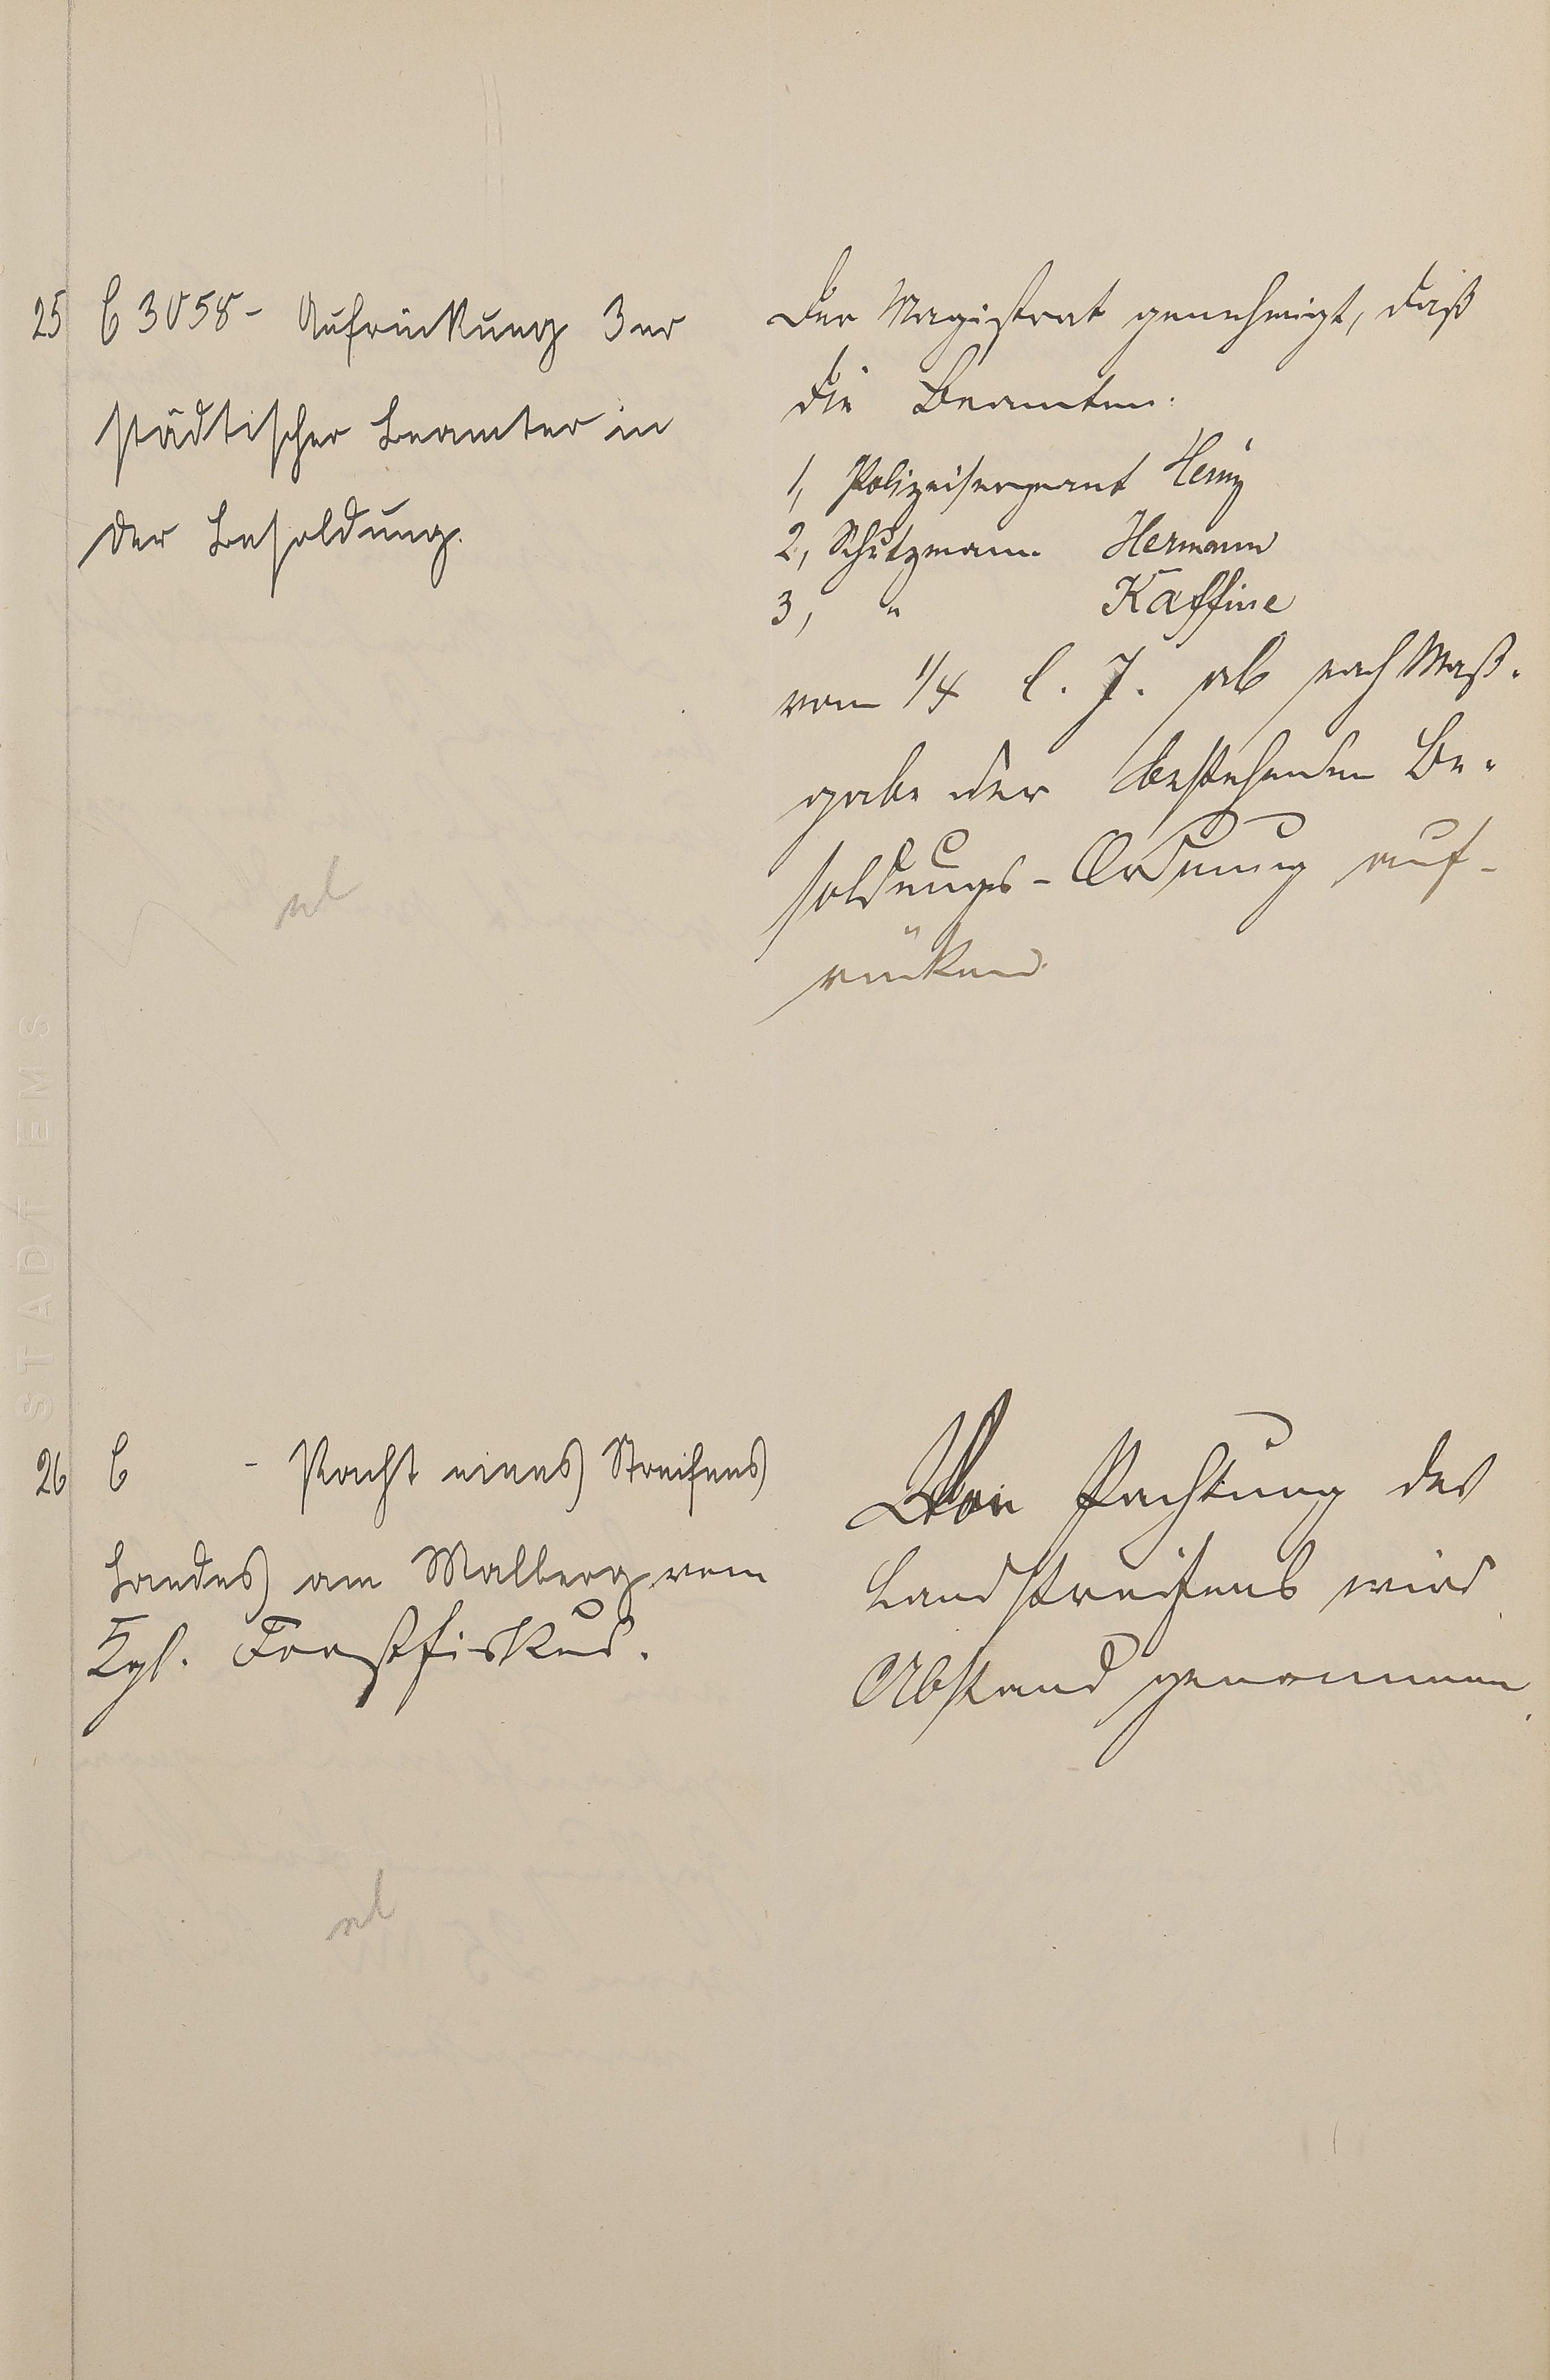 25 C 3058 - Aufrückung 3er
städtischer Beamter in
der Besoldung.
Der Magistrat genehmigt, daß
die Beamten:
1, Polizeisergeant
2, Schutzmann Hermann
3, " Kaffine
vom 1/4 l. J. ab nach Maß-
gabe der bestehenden Be-
soldungs-Ordnung auf-
rücken.
nl
STADT EMS
26 C - Pacht eines Streifens
Landes am Malberg vom
Kgl. Forstfiskus.
Von Pachtung des
Landstreifens wird
Abstand genommen.
nl